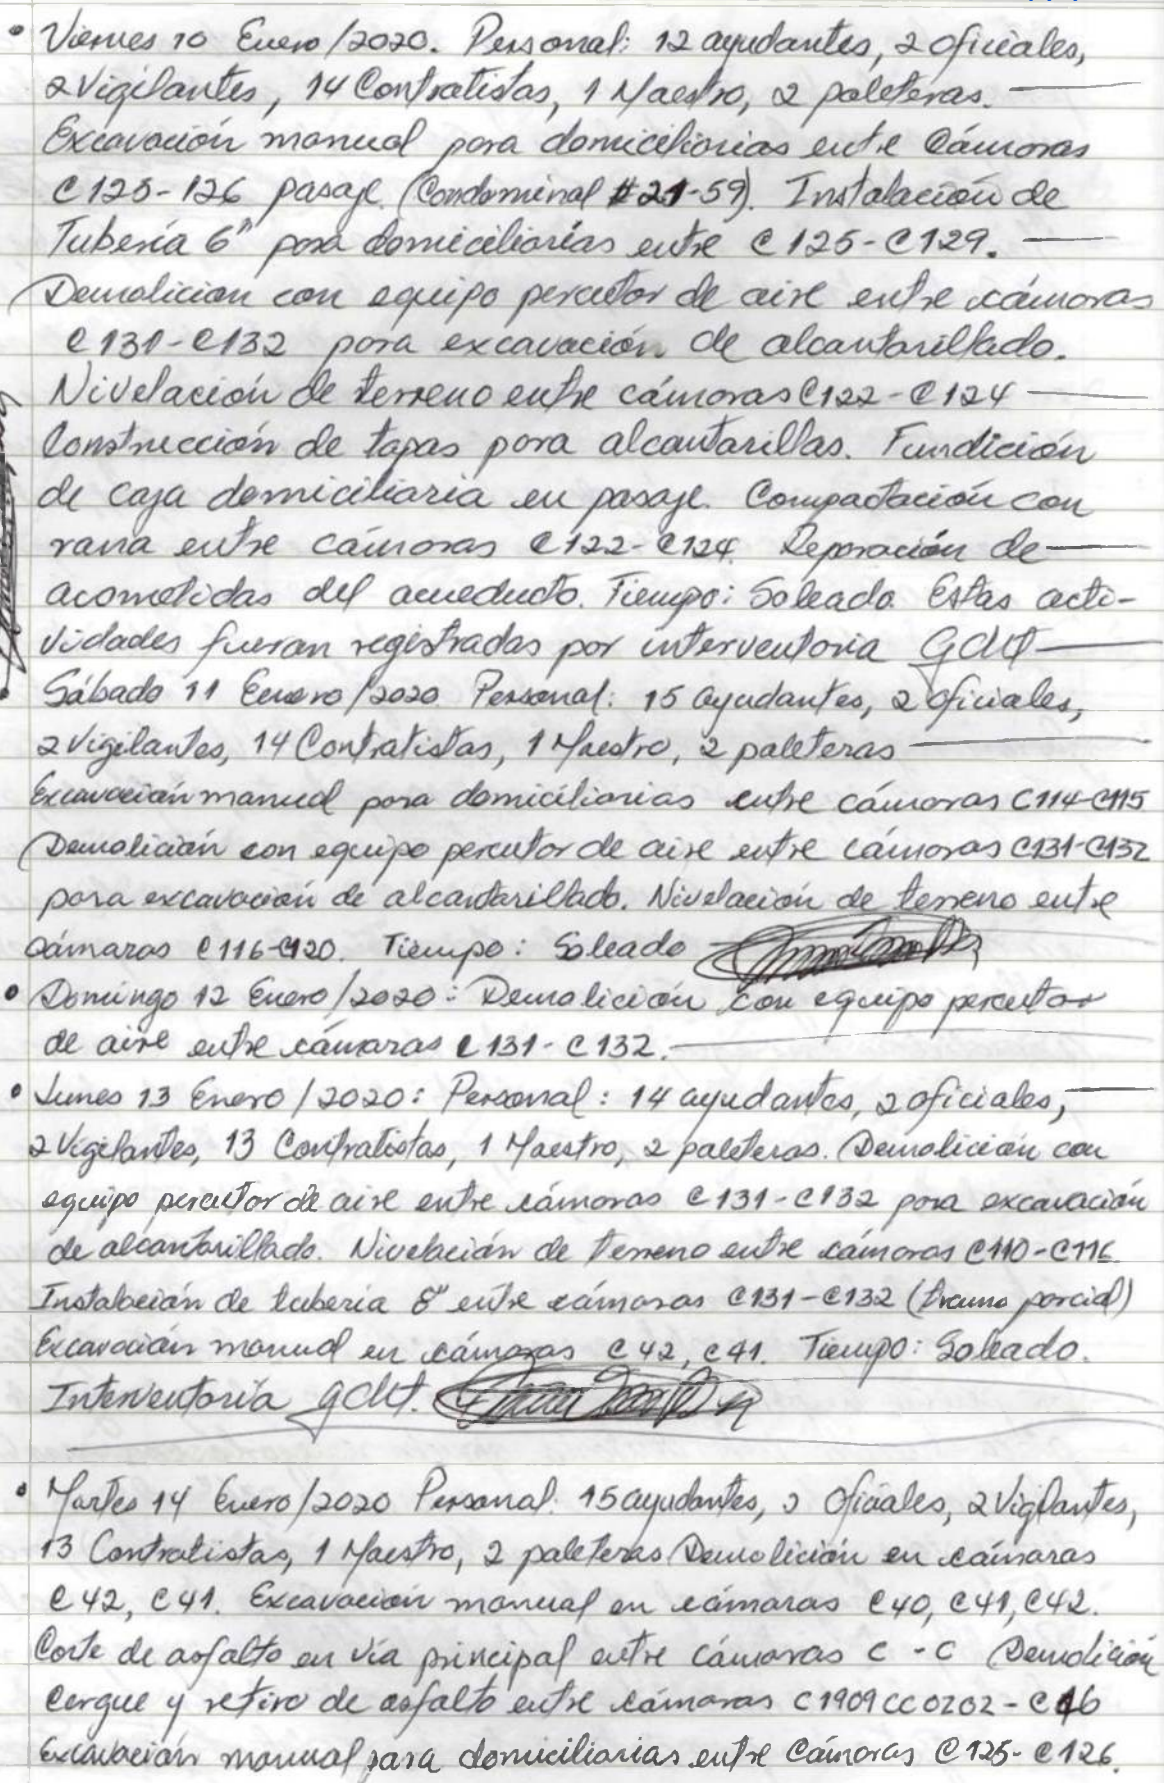 • Viernes 10 Enero/2020. Personal: 12 ayudantes, 2 oficiales,
2 Vigilantes, 14 Contratistas, 1 Maestro, 2 paleteras.
Excavación manual para domiciliarias entre Cámaras
C125-126 pasaje (Condominal #21-59). Instalación de
Tubería 6" para domiciliarias entre C125-C129.
Demolición con equipo percutor de aire entre cámaras
C131-C132 para excavación de alcantarillado.
Nivelación de terreno entre cámaras C122-C124
Construcción de tapas para alcantarillas. Fundición
de caja domiciliaria en pasaje. Compactación con
rana entre cámaras C122-C124. Reparación de
acometidas del acueducto. Tiempo: Soleado. Estas acti-
vidades fueron registradas por interventoria
• Sábado 11 Enero/2020 Personal: 15 ayudantes, 2 oficiales,
2 Vigilantes, 14 Contratistas, 1 Maestro, 2 paleteras
Excavación manual para domiciliarias entre cámaras C114-C115
Demolición con equipo percutor de aire entre cámaras C131-C132
para excavación de alcantarillado. Nivelación de terreno entre
Cámaras C116-C120. Tiempo: Soleado
• Domingo 12 Enero/2020: Demolición con equipo percutor
de aire entre cámaras C131-C132.
• Lunes 13 Enero/2020: Personal: 14 ayudantes, 2 oficiales,
2 Vigilantes, 13 Contratistas, 1 Maestro, 2 paleteras. Demolición con
equipo percutor de aire entre cámaras C131-C132 para excavación
de alcantarillado. Nivelación de terreno entre cámaras C110-C116
Instalación de tuberia 8" entre cámaras C131-C132 (tramo parcial)
Excavación manual en cámaras C42, C41. Tiempo: Soleado.
Interventoria
• Martes 14 Enero/2020 Personal: 15 ayudantes, 2 Oficiales, 2 Vigilantes,
13 Contratistas, 1 Maestro, 2 paleteras Demolición en cámaras
C42, C41. Excavación manual en cámaras C40, C41, C42.
Corte de asfalto en Vía principal entre cámaras C - C Demolición
Cargue y retiro de asfalto entre cámaras C1909CC0202-C46
Excavación manual para domiciliarias entre Cámaras C125-C126.